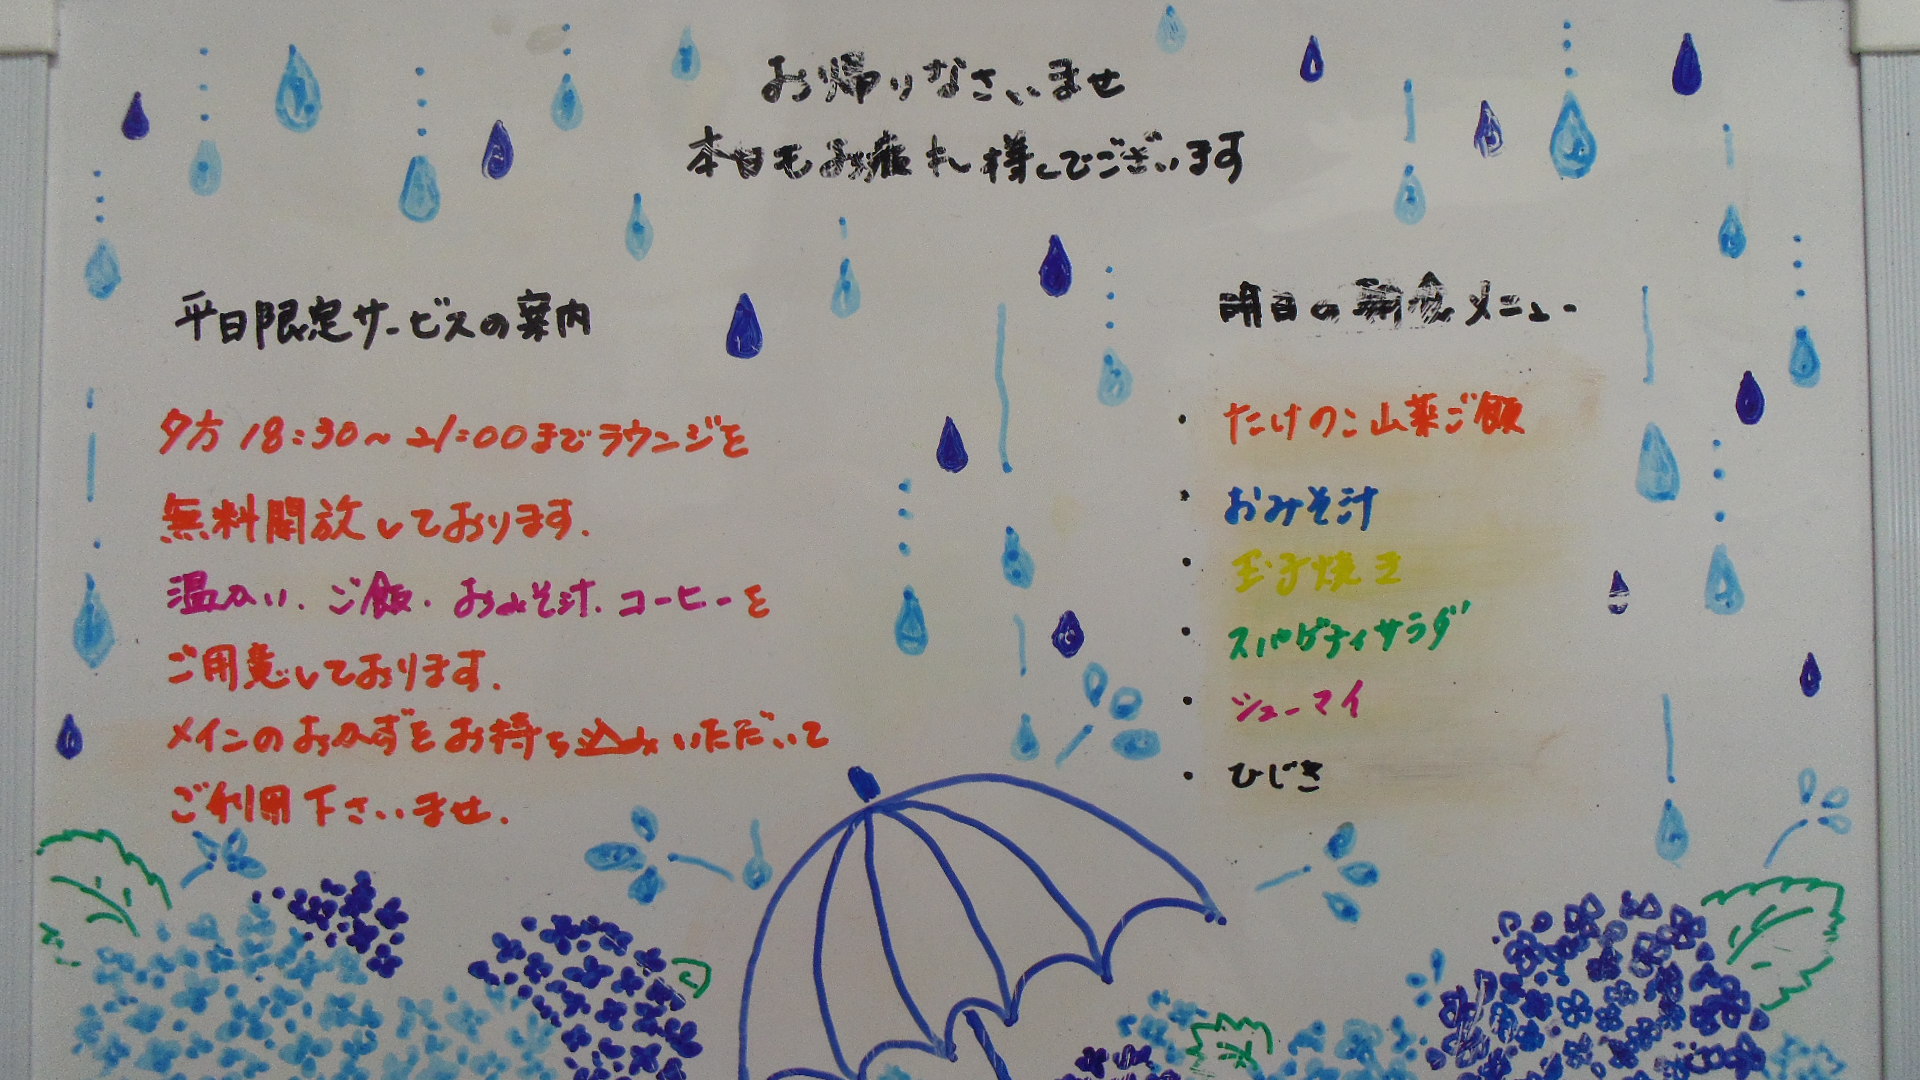 お帰りなさいませ
本日もお疲れ様でございます
平日限定サービスの案内
夕方18:30～21:00までラウンジを
無料開放しております.
温かい.ご飯.おみそ汁.コーヒーを
ご用意しております.
メインのおかずをお持ち込みいただいて
ご利用下さいませ.
明日の朝食メニュー
・たけのこ山菜ご飯
・おみそ汁
・玉子焼き
・スパゲティサラダ
・シューマイ
・ひじき